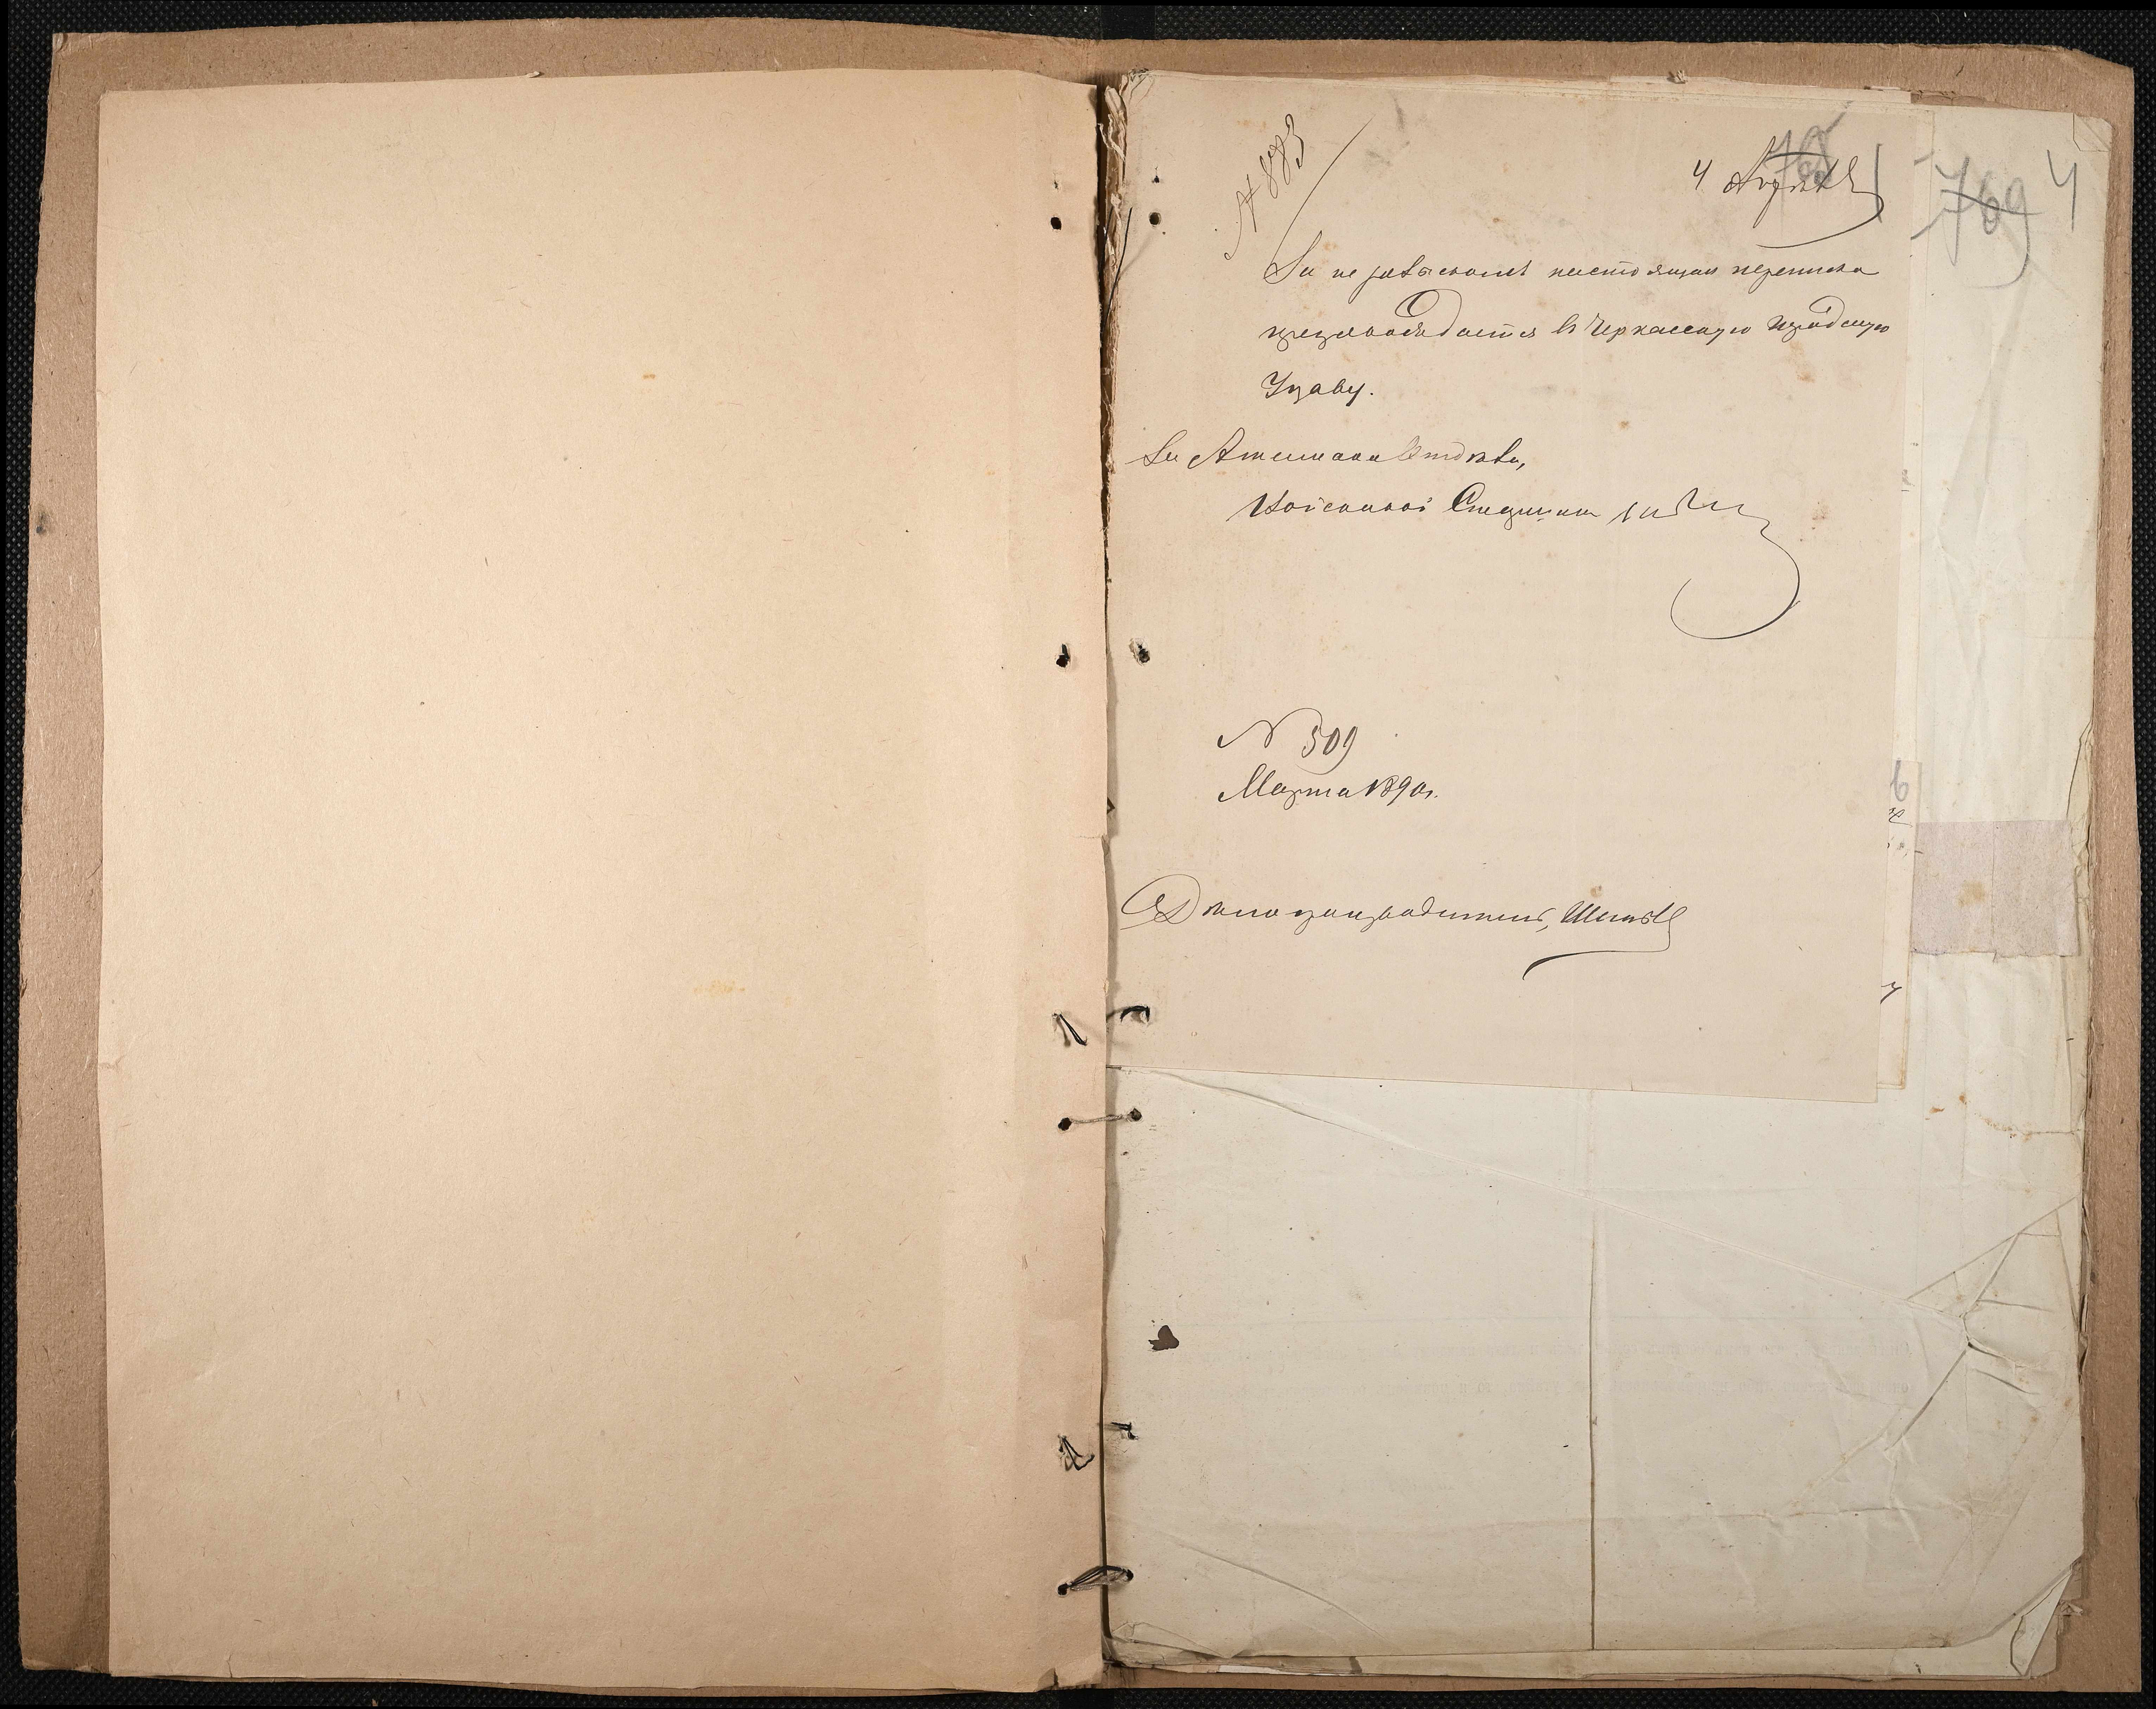 № 883
4 Апреля
769 4
За не розысканіемъ настоящая переписка
препровождается въ Черкасскую Городскую
Управу.
За Атамана Отдѣла,
Войсковой Старшина
№ 509
Марта 1890 г.
Дѣлопроизводитель,